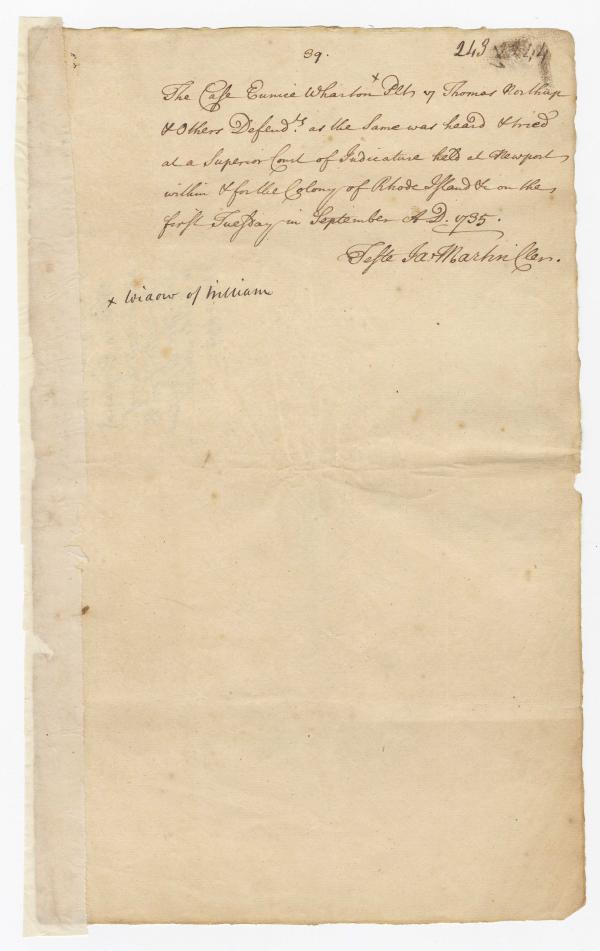 39.
243
The Case Eunice Wharton + Plt v Thomas Northup
& Others Defend.ts as the Same was heard & tried
at a Superior Court of Judicature held at Newport
within & for the Colony of Rhode Island &c on the
first Tuesday in September A D. 1735.
Teste Jas Martin Cler.
+ Widow of William